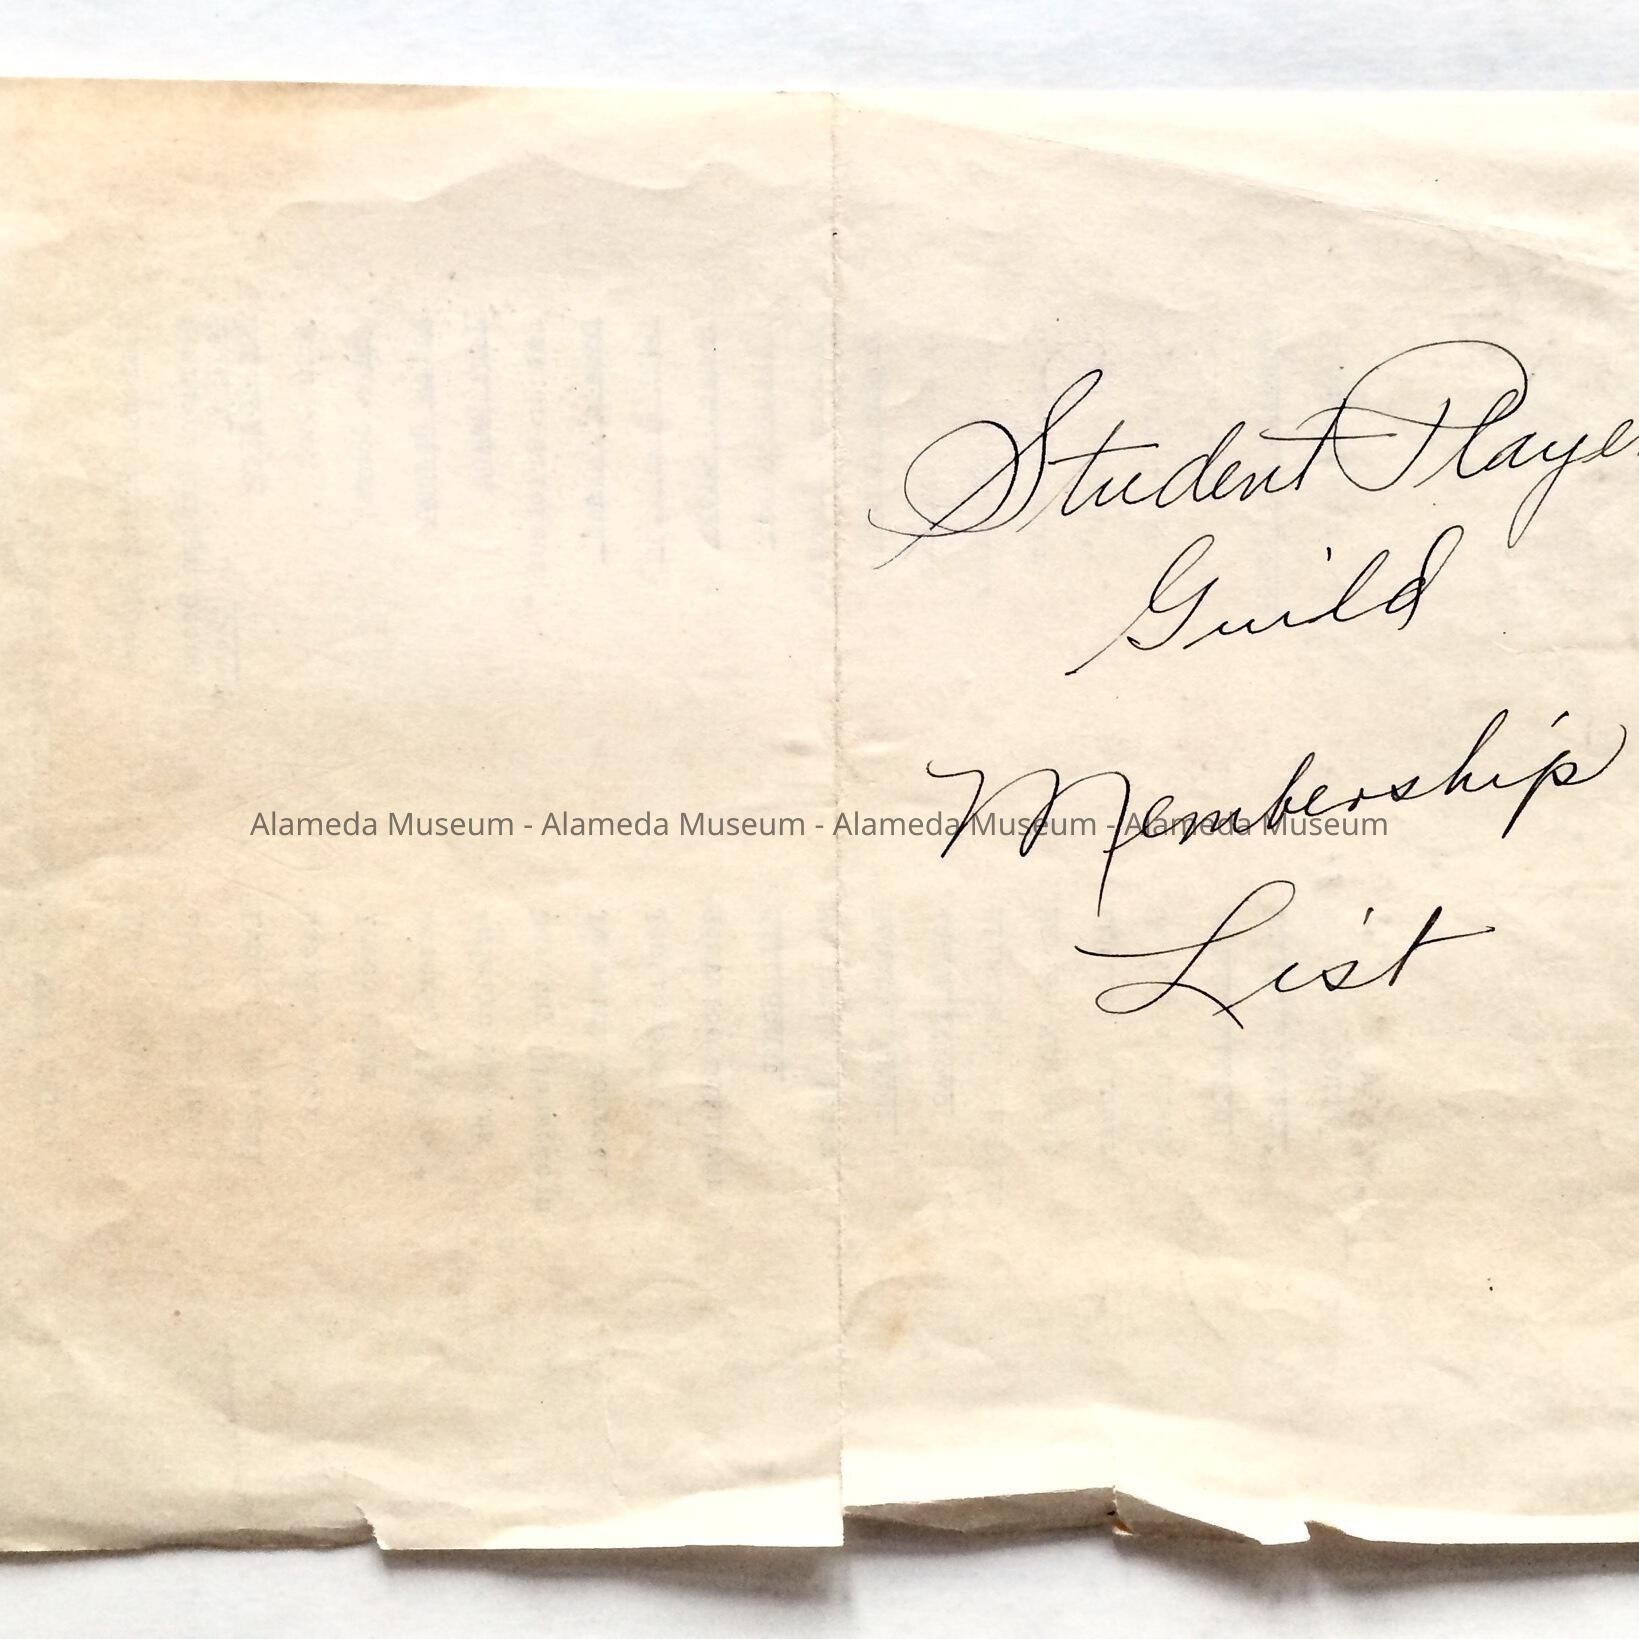 Student Playe
Guild
Membership
Alameda Museum - Alameda Museum - Alameda Museum - Alameda Museum
List